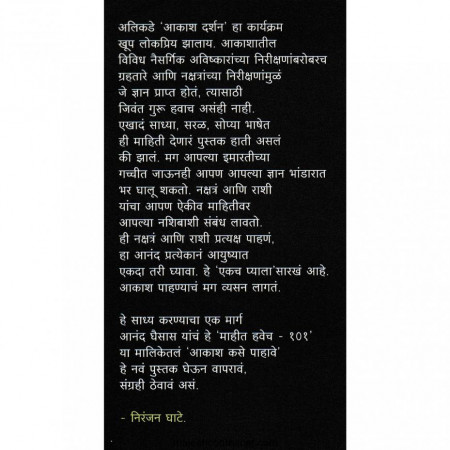 अलिकडे 'आकाश दर्शन' हा कार्यक्रम
खूप लोकप्रिय झालाय. आकाशातील
विविध नैसर्गिक अविष्कारांच्या निरीक्षणांबरोबरच
ग्रहतारे आणि नक्षत्रांच्या निरीक्षणांमुळं
जे ज्ञान प्राप्त होतं, त्यासाठी
जिवंत गुरू हवाच असंही नाही.
एखादं साध्या, सरळ, सोप्या भाषेत
ही माहिती देणारं पुस्तक हाती असलं
की झालं. मग आपल्या इमारतीच्या
गच्चीत जाऊनही आपण आपल्या ज्ञान भांडारात
भर घालू शकतो. नक्षत्रं आणि राशी
यांचा आपण ऐकीव माहितीवर
आपल्या नशिबाशी संबंध लावतो.
ही नक्षत्रं आणि राशी प्रत्यक्ष पाहणं,
हा आनंद प्रत्येकानं आयुष्यात
एकदा तरी घ्यावा. हे 'एकच प्याला'सारखं आहे.
आकाश पाहण्याचं मग व्यसन लागतं.
हे साध्य करण्याचा एक मार्ग
आनंद घैसास यांचं हे 'माहीत हवेच - १०१'
या मालिकेतलं 'आकाश कसे पाहावे'
हे नवं पुस्तक घेऊन वापरावं,
संग्रही ठेवावं असं.
- निरंजन घाटे.